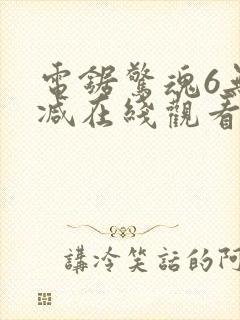 電鋸驚魂6
減在綫觀看
講冷笑話的阿